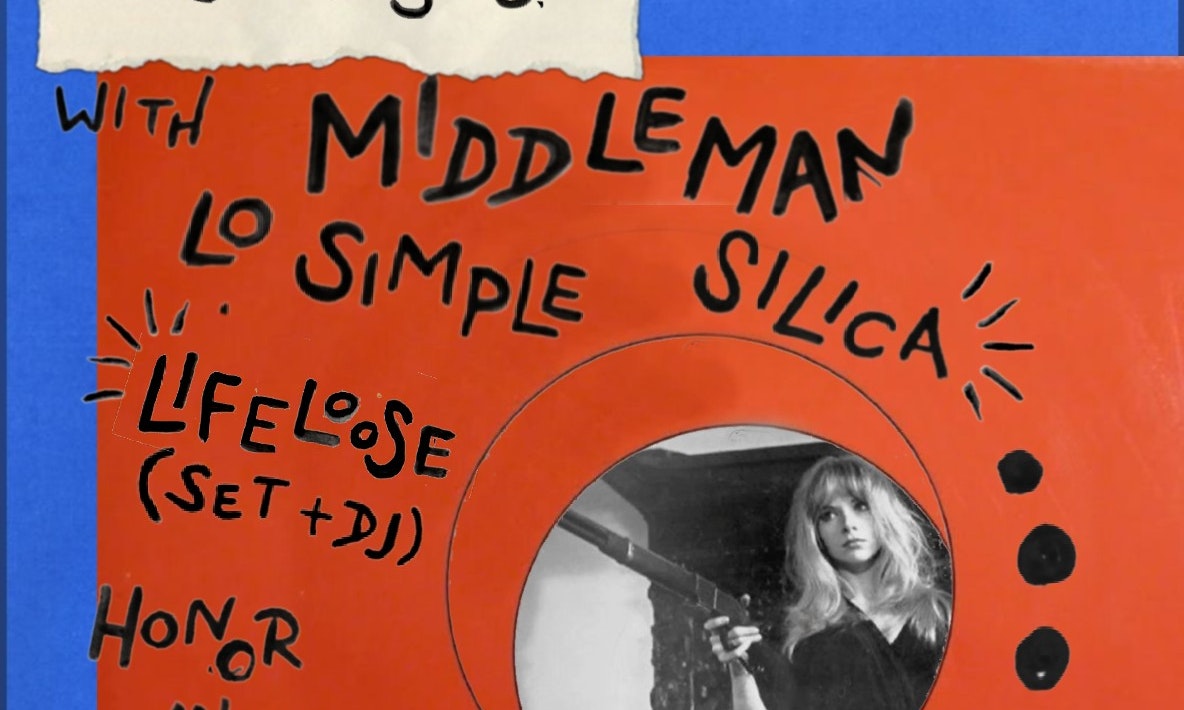 WITH MIDDLEMAN
LO SIMPLE SILICA
LIFELOOSE
(SET + DJ)
HONOR